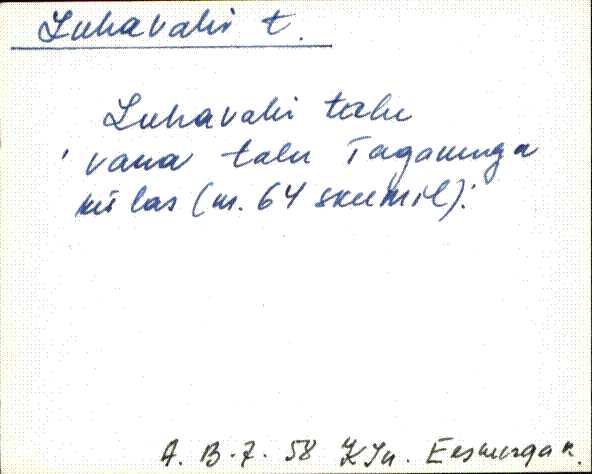 Luhavahi t.
Luhavahi talu
vana talu Tagametsa
külas (n. 64 skeemil).
A. B. 7. 58 KJn. Eesnurga k.